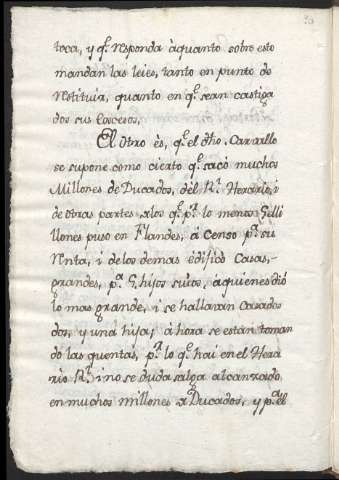 toca, y q.e responda àquanto sobre esto
mandan las leies, tanto en punto de
restituir, quanto en q.e sean castiga
dos sus Excesos.
El otro ès, q.e el dho. Carrillo
se supone como cierto q.e sacó muchos
Millones de Ducados, dèl R.l Herario, i
de otras partes, los q.e p.r lo menos
llones puso en Flandes, á Censo p.a su
renta, i de los demas édificò Casas,-
grandes, p.a 6 hijos suios, àquienes dió
lo mas grande, i se hallaran Casados
dos, y una hija; à hora se están toman
do las quentas, p.r lo q.e hai en el Hera
rio R.l i no se duda salga alcanzado,
en muchos millones de Ducados, y p.a el